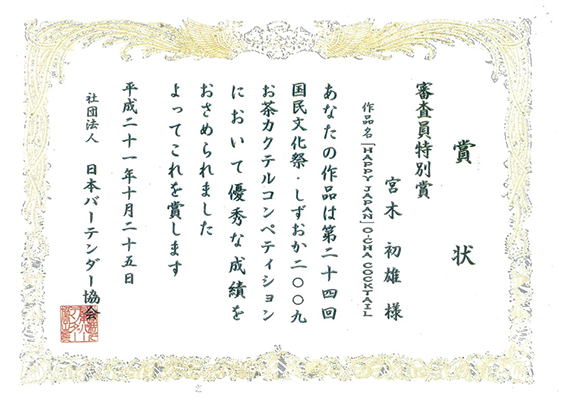 賞状
審査員特別賞
宮木 初雄 様
作品名「HAPPY JAPAN」O-CHA COCKTAIL
あなたの作品は第二十四回
国民文化祭・しずおか二〇〇九
お茶カクテルコンペティション
において優秀な成績を
おさめられました
よってこれを賞します
平成二十一年十月二十五日
社団法人 日本バーテンダー協会